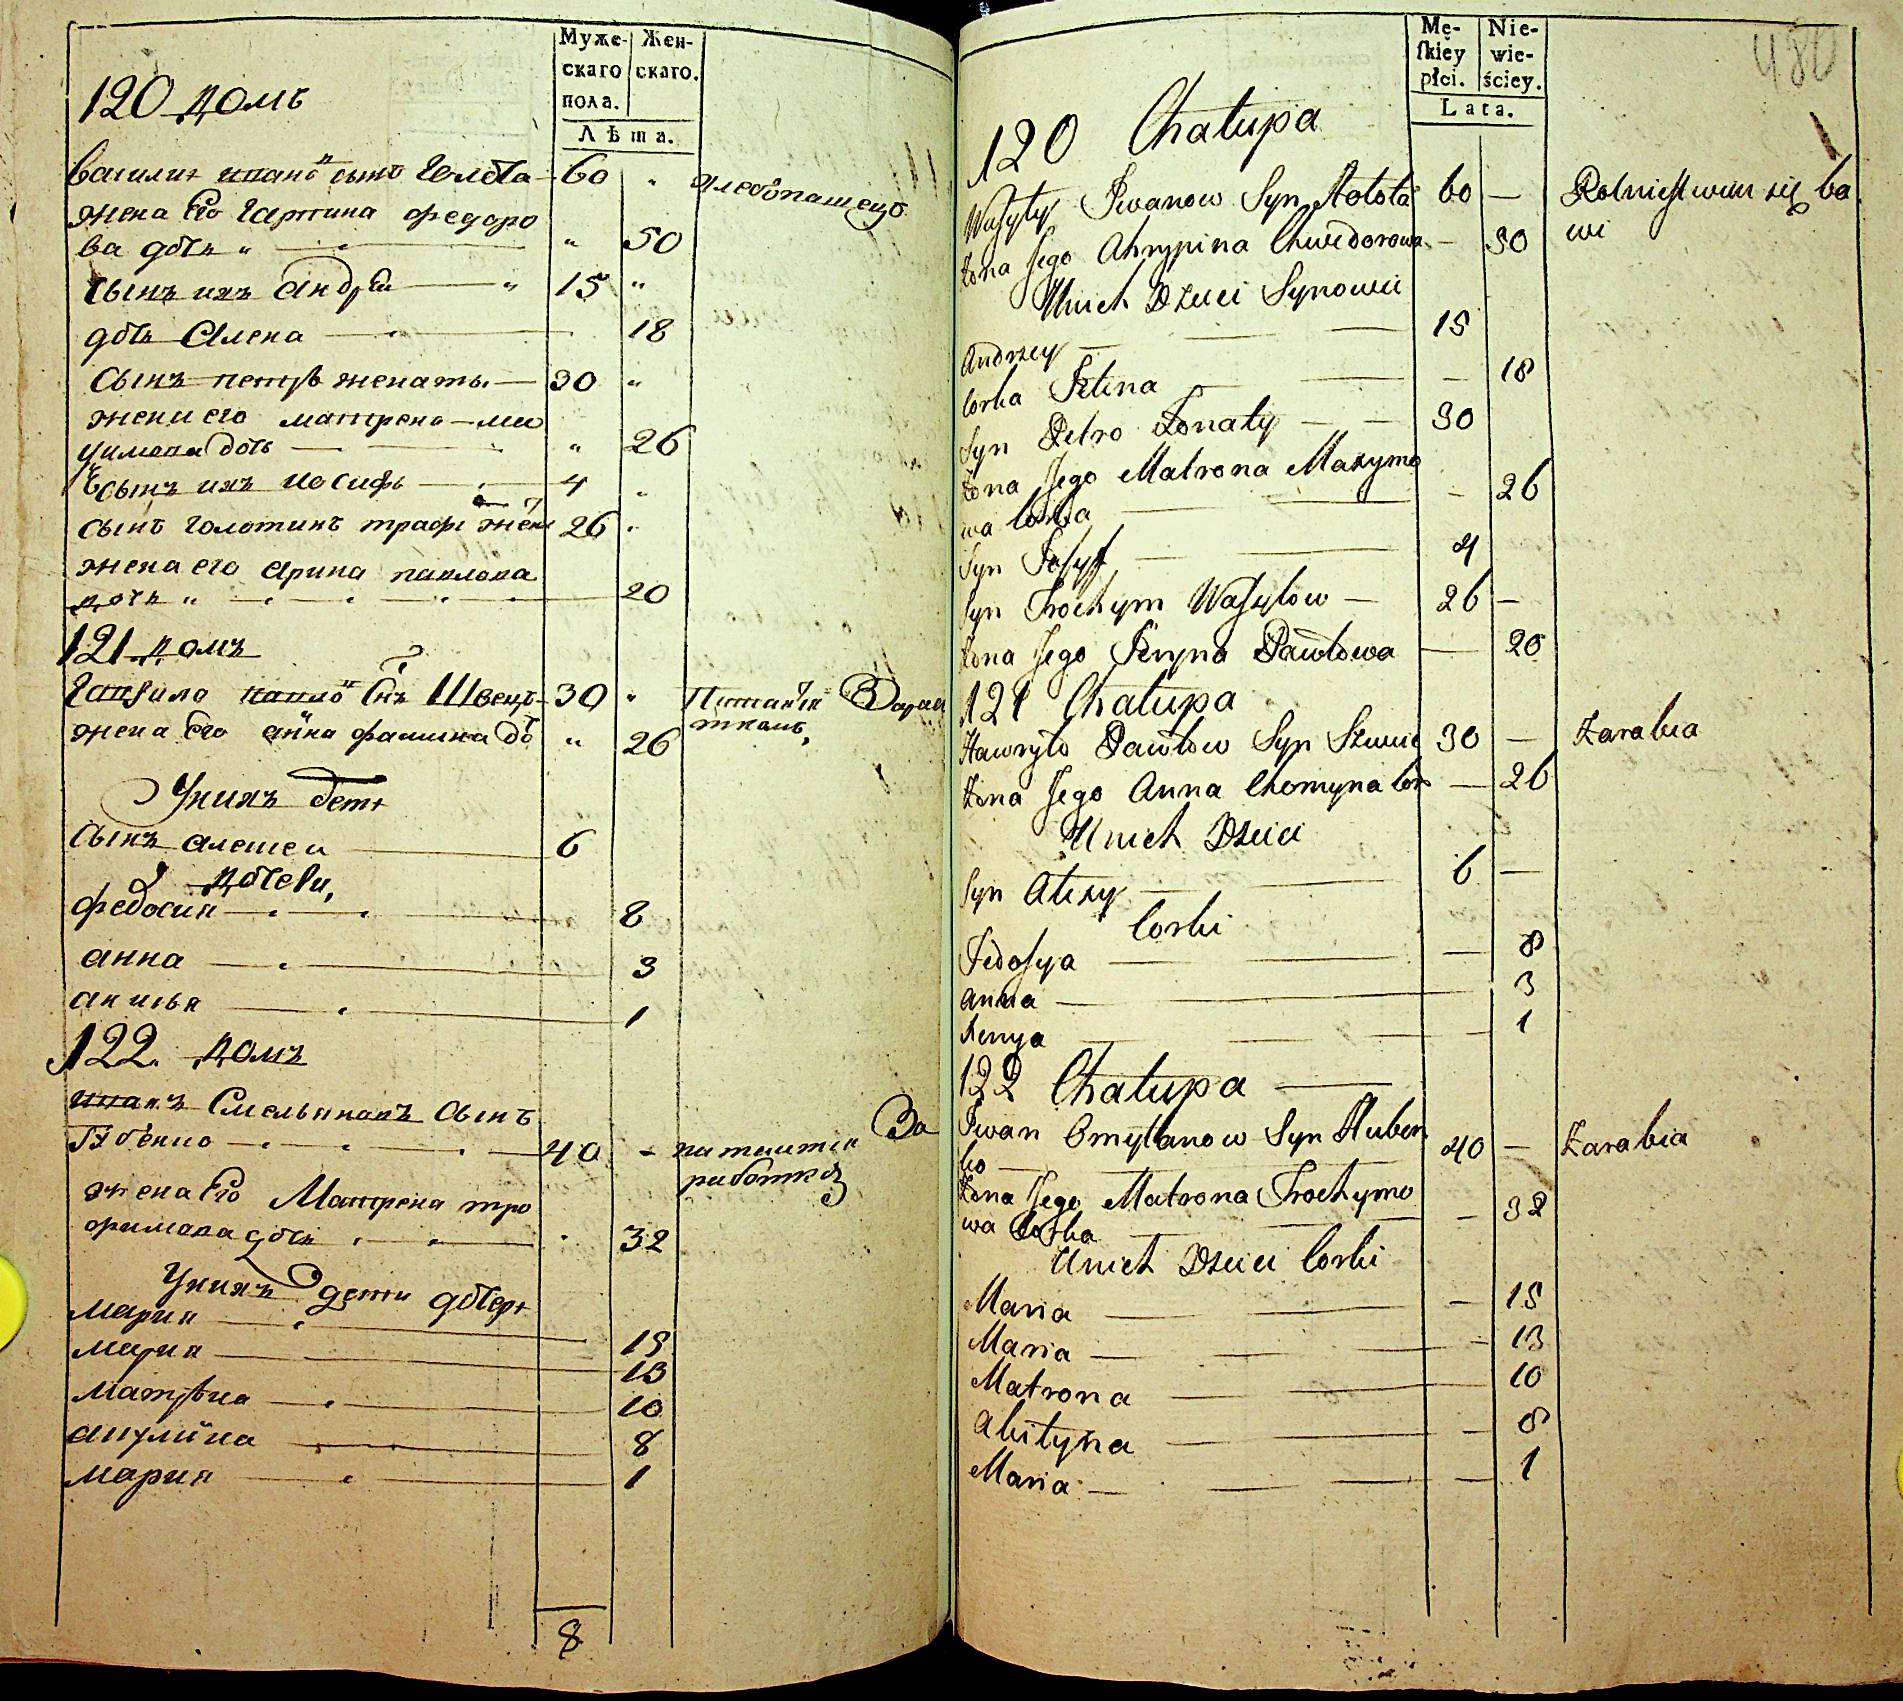 Муже-
скаго
пола.
Жен-
скаго.
Лѣта.
120 домъ
Василий Ивановъ сынъ Голота 60 "
хлебопашецъ
жена Его Гапина федоро
ва дочь " 50
сынъ ихъ андрей 15 "
дочь Алена 18
Сынъ петръ женаты 30 "
жена его матрена
дочь " 26
сынъ ихъ иосифъ 4
сынъ голотинъ трафи жена 26
жена его арина павлова
дочь " 20
121 домъ
Гаврило Павловъ Снъ Швецъ 30 "
жена Его анна фамина до " 26
Унихъ дети
Сынъ алешеи 6
дочери,
федосия 8
анна 3
1
122 домъ
Иванъ Емельяновъ Сынъ
40
жена Его Матрена тро
фимова дочь 32
Унихъ дети дочери
мария 15
мария 13
матрена 10
акулина 8
мария 1
8
480
Mę-
skiey
płci.
Nie-
wie-
ściey.
Lata.
120 Chałupa
Wasyły Iwanow Syn Hołota 60 — Rolnictwem się ba
wi
Żona Jego Ahrypina Chwedorowa — 50
Unich Dzieci Synowie
Andrzey — 15
Corka Ilena — 18
Syn Petro Żonaty — 30
Żona Jego Matrona Maxymo
wa Corka — 26
Syn Josyf — 4
Syn Trochym Wasyłow — 26 —
Żona Jego Iryna Pawłowa — 20
121 Chałupa
Hawryło Pawłow Syn Szwec 30 — Zarabia
Żona Jego Anna Chomyna Cor — 26
Unich Dzieci
Syn Alexy — 6 —
Corki
Fedosya — 8
Anna — 3
1
122 Chałupa —
Iwan Omylanow Syn Huben
ko — 40 — Zarabia
Żona Jego Matrona Trochymo
wa Corka — 32
Unich Dzieci Corki
Maria — 15
Maria — 13
Matrona — 10
Akiłyna — 8
Maria — 1